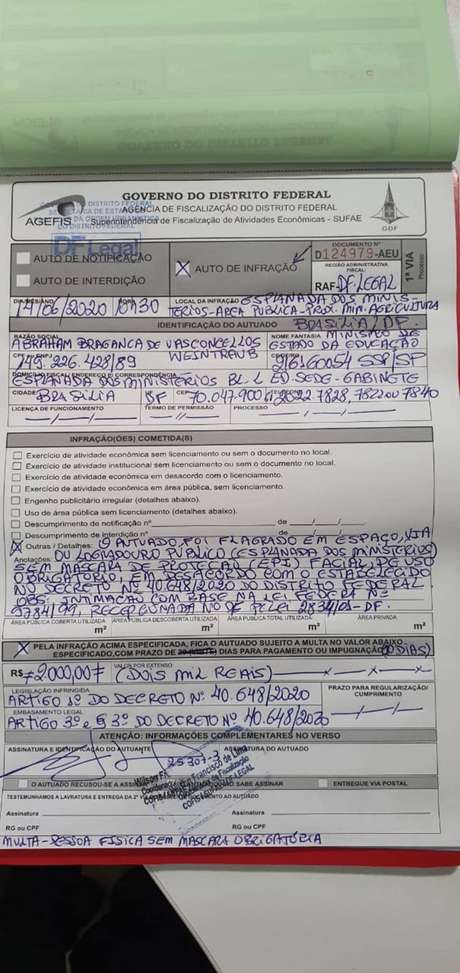 GOVERNO DO DISTRITO FEDERAL
AGÊNCIA DE FISCALIZAÇÃO DO DISTRITO FEDERAL
Superintendência de Fiscalização de Atividades Econômicas - SUFAE
AGEFIS
DF Legal
GDF
AUTO DE NOTIFICAÇÃO
AUTO DE INTERDIÇÃO
X AUTO DE INFRAÇÃO
DOCUMENTO Nº
D124979-AEU
REGIÃO ADMINISTRATIVA FISCAL:
RAF- DF-LEGAL
1ª VIA
Processo
14/06/2020 10h30
LOCAL DA INFRAÇÃO ESPLANADA DOS MINIS-
TÉRIOS-ÁREA PÚBLICA-PROX. MIN. AGRICULTURA
IDENTIFICAÇÃO DO AUTUADO BRASÍLIA/DF.
RAZÃO SOCIAL
NOME FANTASIA MINISTRO DE
ABRAHAM BRAGANÇA DE VASCONCELLOS WEINTRAUB
ESTADO DA EDUCAÇÃO
SSP/SP
ESPLANADA DOS MINISTÉRIOS BL. L ED. SEDE-GABINETE
CIDADE BRASÍLIA DF CEP 70.047.900
LICENÇA DE FUNCIONAMENTO TERMO DE PERMISSÃO PROCESSO
INFRAÇÃO(ÕES) COMETIDA(S)
Exercício de atividade econômica sem licenciamento ou sem o documento no local.
Exercício de atividade institucional sem licenciamento ou sem o documento no local.
Exercício de atividade econômica em desacordo com o licenciamento.
Exercício de atividade econômica em área pública, sem licenciamento.
Engenho publicitário irregular (detalhes abaixo).
Uso de área pública sem licenciamento (detalhes abaixo).
Descumprimento de notificação nº de / /
Descumprimento de Interdição nº de / /
X Outras / Detalhes: O AUTUADO FOI FLAGRADO EM ESPAÇO, VIA
Anotações: OU LOGRADOURO PÚBLICO (ESPLANADA DOS MINISTÉRIOS)
SEM MÁSCARA DE PROTEÇÃO (EPI) FACIAL, DE USO
OBRIGATÓRIO, EM DESACORDO COM O ESTABELECIDO
NO DECRETO Nº 40.648/2020 DO DISTRITO FEDERAL
OBS: INTIMAÇÃO COM BASE NA LEI FEDERAL Nº
9784/99, RECEPCIONADA NO DF P/ LEI 2834/01-DF.
ÁREA PÚBLICA COBERTA UTILIZADA ÁREA PÚBLICA DESCOBERTA UTILIZADA ÁREA PÚBLICA TOTAL UTILIZADA ÁREA PRIVADA
m² m² m² m²
X PELA INFRAÇÃO ACIMA ESPECIFICADA, FICA O AUTUADO SUJEITO A MULTA NO VALOR ABAIXO
ESPECIFICADO, COM PRAZO DE DIAS PARA PAGAMENTO OU IMPUGNAÇÃO DIAS)
VALOR POR EXTENSO
R$ 2000,00 (DOIS MIL REAIS)
LEGISLAÇÃO INFRINGIDA
ARTIGO 1º DO DECRETO Nº 40.648/2020
PRAZO PARA REGULARIZAÇÃO/
CUMPRIMENTO
EMBASAMENTO LEGAL
ARTIGO 3º e § 3º DO DECRETO Nº 40.648/2020
ATENÇÃO: INFORMAÇÕES COMPLEMENTARES NO VERSO
ASSINATURA E IDENTIFICAÇÃO DO AUTUANTE
ASSINATURA DO AUTUADO
O AUTUADO RECUSOU-SE A ASSINAR SABE ASSINAR ENTREGUE VIA POSTAL
TESTEMUNHAMOS A LAVRATURA E ENTREGA DA 2ª AO AUTUADO
Assinatura Assinatura
RG ou CPF RG ou CPF
MULTA-PESSOA FÍSICA SEM MÁSCARA OBRIGATÓRIA